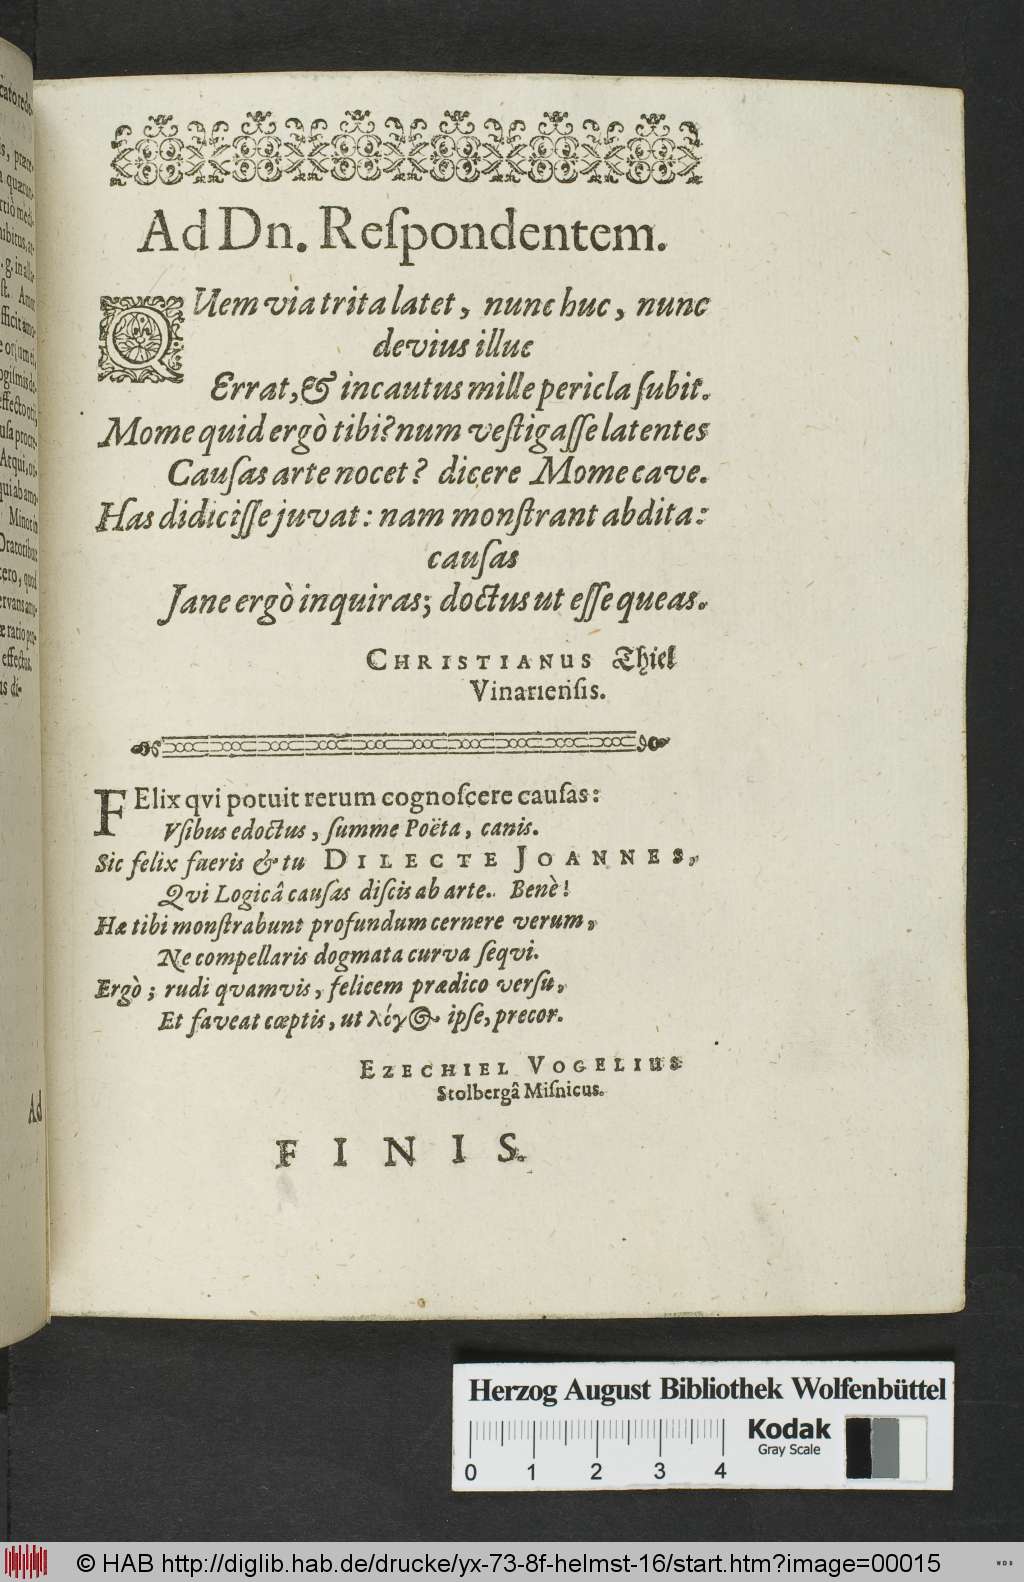 Ad Dn. Reſpondentem.
QUem via trita latet, nunc huc, nunc
devius illuc
Errat, & incautus mille pericla ſubit.
Mome quid ergò tibi? num veſtigaſſe latentes
Cauſas arte nocet? dicere Mome cave.
Has didiciſſe juvat: nam monſtrant abdita:
cauſas
Jane ergò inquiras; doctus ut eſſe queas.
CHRISTIANUS Thiel
Vinarienſis.
FElix qvi potuit rerum cognoſcere cauſas:
Vſibus edoctus, ſumme Poëta, canis.
Sic felix fueris & tu DILECTE JOANNES,
Qvi Logicâ cauſas diſcis ab arte. Benè!
Hæ tibi monſtrabunt profundum cernere verum,
Ne compellaris dogmata curva ſeqvi.
Ergò; rudi qvamvis, felicem prædico verſu,
Et faveat cœptis, ut λόγος ipſe, precor.
EZECHIEL VOGELIUS
Stolbergâ Miſnicus.
FINIS.
Ad
Herzog August Bibliothek Wolfenbüttel
0 1 2 3 4
Kodak
Gray Scale
© HAB http://diglib.hab.de/drucke/yx-73-8f-helmst-16/start.htm?image=00015